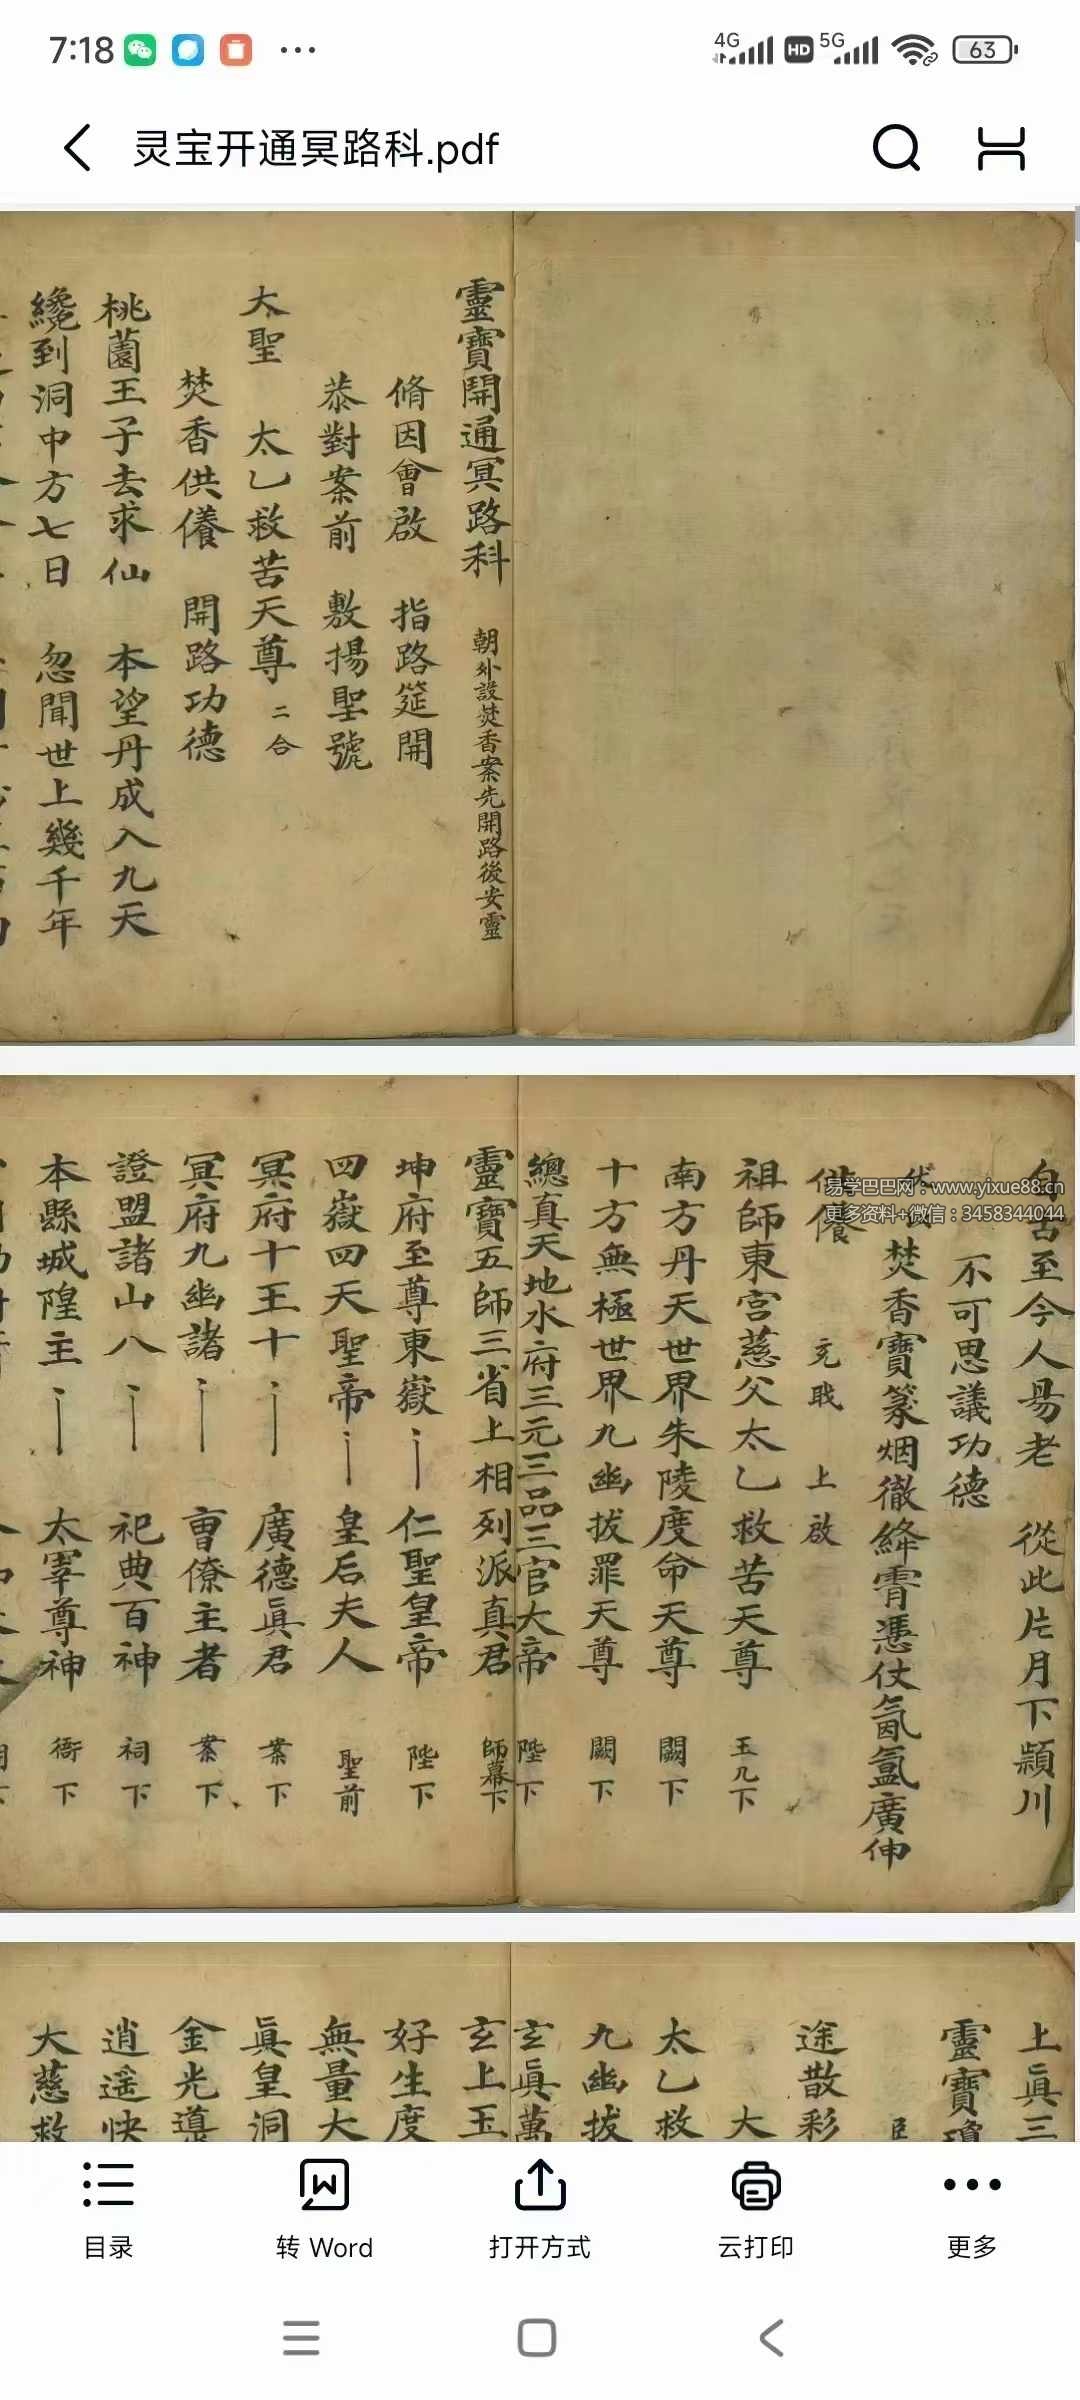 7:18
4G HD 5G 63
灵宝开通冥路科.pdf
靈寶開通冥路科 朝外設焚香案先開路後安靈
脩因會啟 指路筵開
恭對案前 敷揚聖號
太聖 太乙救苦天尊 二合
焚香供養 開路功德
桃薗王子去求仙 本望丹成入九天
纔到洞中方七日 忽聞世上幾千年
易学巴巴网：www.yixue88.cn
更多资料+微信：3458344044
自古至今人易老 從此片月下頴川
不可思議功德
焚香寶篆烟徹絳霄憑仗氤氳廣伸
供養 上啟
祖師東宮慈父太乙救苦天尊 玉几下
南方丹天世界朱陵度命天尊 闕下
十方無極世界九幽拔罪天尊 闕下
總真天地水府三元三品三官大帝 陛下
靈寶五師三省上相列派真君 師幕下
坤府至尊東嶽 仁聖皇帝 陛下
四嶽四天聖帝 皇后夫人 聖前
冥府十王十 廣德眞君 案下
冥府九幽諸 曹僚主者 案下
證盟諸山八 祀典百神 祠下
本縣城隍主 太宰尊神 衙下
上眞三
靈寶
臣
途散彩
大
太乙救
九幽拔
玄眞萬
玄上玉
好生度
無量大
眞皇洞
金光
逍遥快
大慈救
目录
转 Word
打开方式
云打印
更多